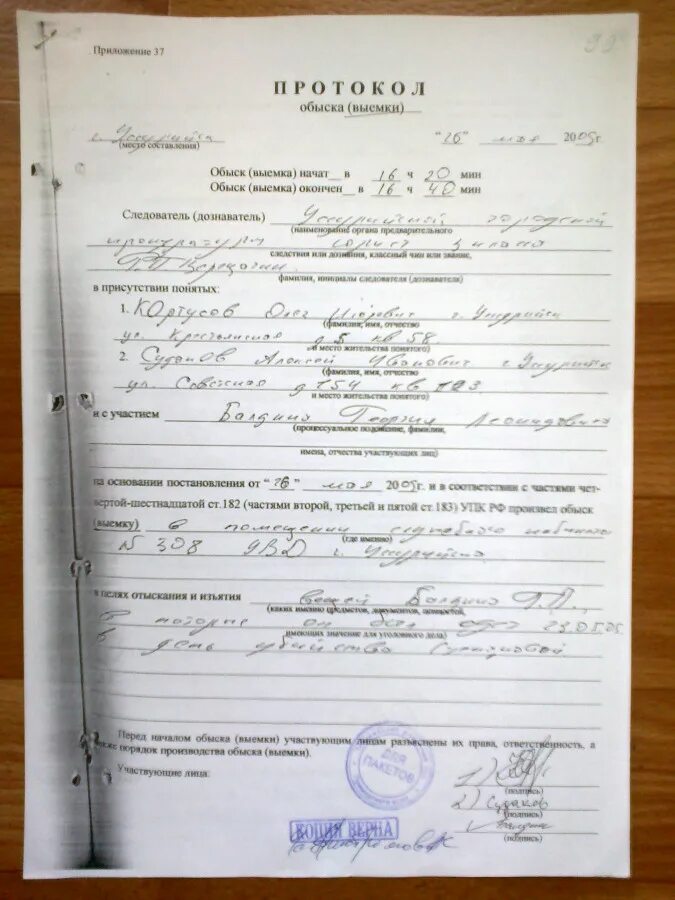 99
Приложение 37
ПРОТОКОЛ
обыска (выемки)
г. Уссурийск "26" мая 2005г
(место составления)
Обыск (выемка) начат в 16 ч 20 мин
Обыск (выемка) окончен в 16 ч 40 мин
Следователь (дознаватель) Уссурийской городской
(наименование органа предварительного
прокуратуры юрист 3 класса
следствия или дознания, классный чин или звание,
фамилия, инициалы следователя (дознавателя)
в присутствии понятых:
1. Олег г. Уссурийск
(фамилия, имя, отчество
ул. Крестьянская д 5 кв 58.
и место жительства понятого)
2. Судаков Алексей Иванович г. Уссурийск
(фамилия, имя, отчество
ул. Советская д 154 кв 123
и место жительства понятого)
и с участием Балдина Георгия Леонидовича
(процессуальное положение, фамилия,
имена, отчества участвующих лиц)
на основании постановления от "26" мая 2005г. и в соответствии с частями чет-
вертой-шестнадцатой ст.182 (частями второй, третьей и пятой ст.183) УПК РФ произвел обыск
(выемку) в помещении служебного кабинета
(где именно)
N 308 УВД г. Уссурийска
в целях отыскания и изъятия вещей Балдина Г.Л.,
(каких именно предметов, документов, ценностей,
в которые он был одет
имеющих значение для уголовного дела)
в день убийства
Перед началом обыска (выемки) участвующим лицам разъяснены их права, ответственность, а
также порядок производства обыска (выемки).
Участвующие лица:
ДЛЯ
ПАКЕТОВ
1)
(подпись)
2) Судаков
(подпись)
(подпись)
КОПИЯ ВЕРНА